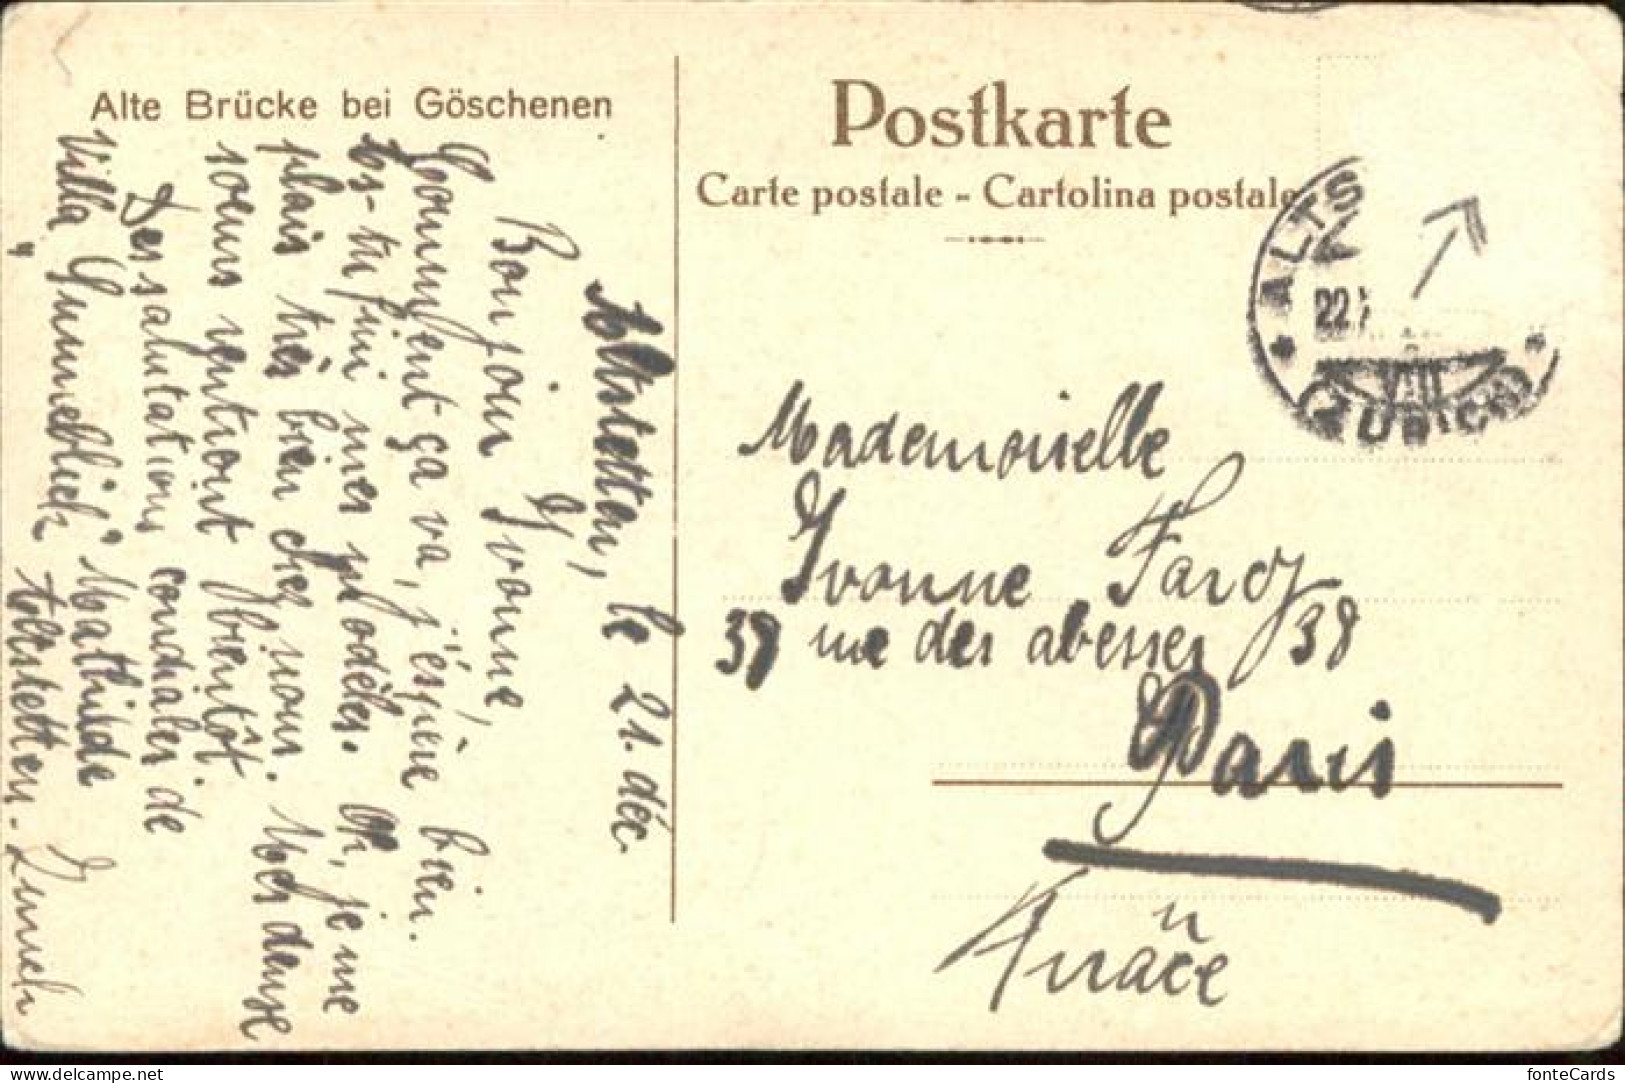 Alte Brücke bei Göschenen
Postkarte
Carte postale - Cartolina postale
ALTS
22.
(ZÜRICH)
VIII
Altstetten, le 21. déc.
Bonjour Yvonne,
Comment ça va, j'éspère bien.
as-tu fini mes modèles. Oh, je me
plais très bien chez nous. Mes deux
soeurs rentront bientôt.
Des salutations condiales de
Villa „Sunneblick" Mathilde
Altstetten-Zürich
Mademoiselle
Yvonne Farcy
38 rue des abesses 38
Paris
France
fonteCards